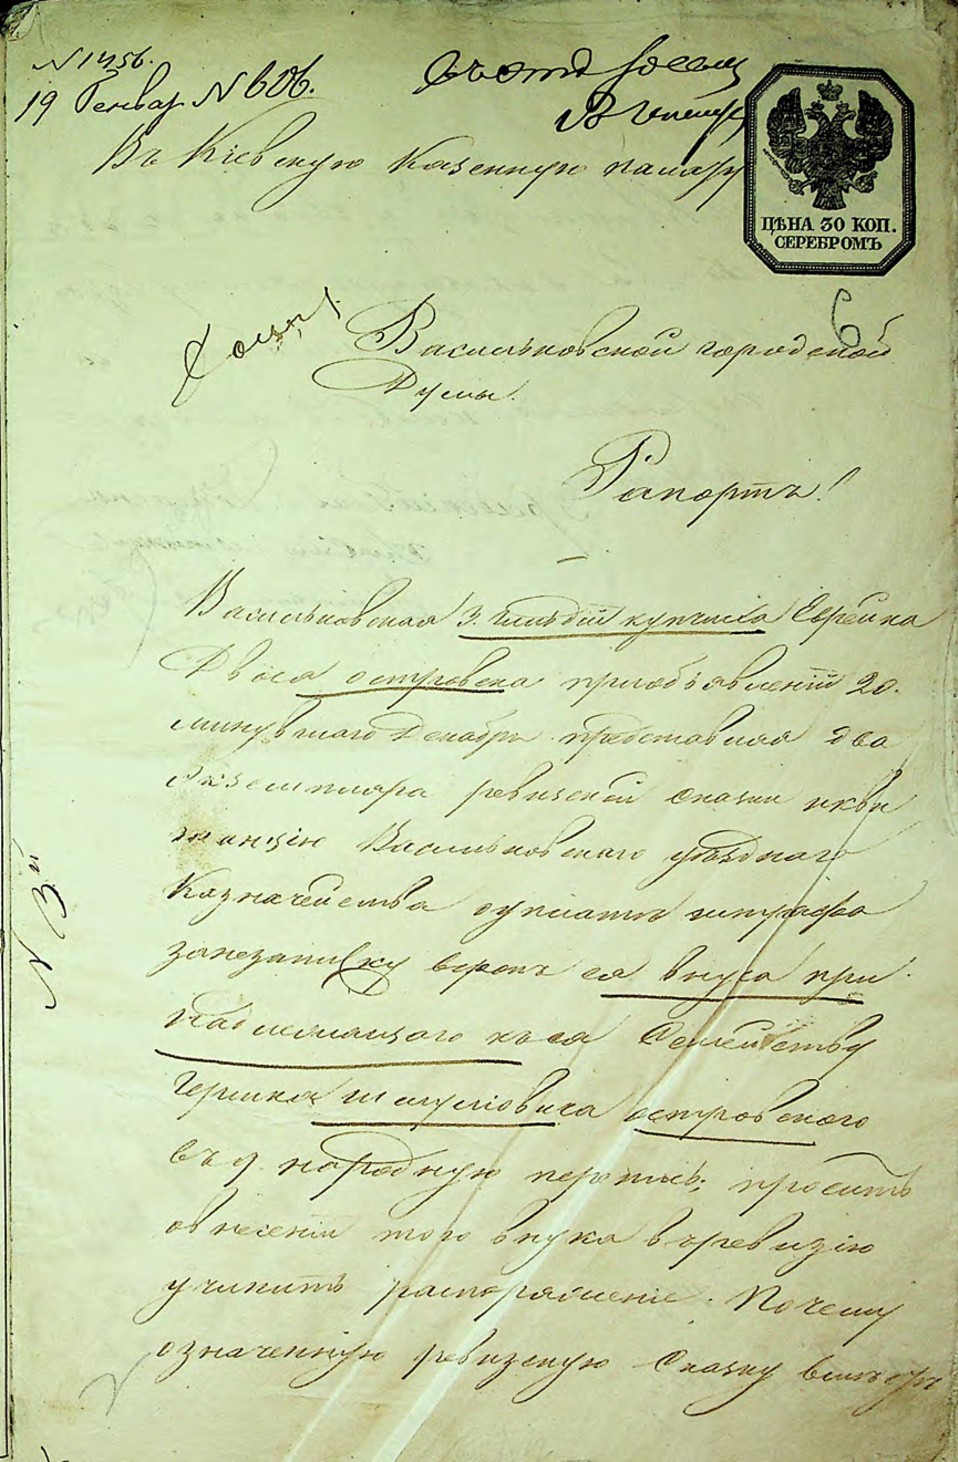 N 1456.
19 Генвар N 606.
Въ Кіевскую Казенную палату
ЦѢНА 30 КОП.
СЕРЕБРОМЪ
6
Васильковской городской
Думы.
Рапортъ!
Васильковская 3. гильдіи купчиха Еврейка
Двося островска приобъявленіи 20.
минувшаго Декабря представила два
Экземпляра ревизской сказки иквы
танцію Васильковскаго уѣзднаго
Казначейства оуплатѣ штрафа
занезаписку ея внука при
надлежащаго къея Семейству
Гершка шмулiовича островскаго
въ 9 народную перепись; проситъ
овнесеніи того внука въревизію
учинить распоряженіе. Почему
означенную ревизскую Сказку
N 3й